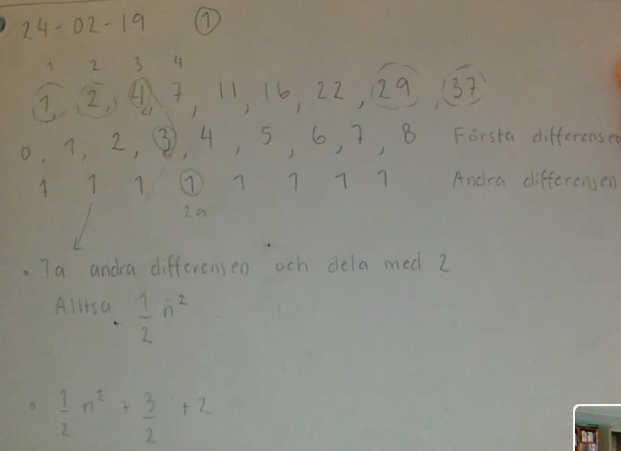 24-02-19 ①
1 2 3 4
1, 2, 4, 7, 11, 16, 22, 29, 37
0, 1, 2, 3, 4, 5, 6, 7, 8 Första differensen
1 1 1 1 1 1 1 1 Andra differensen
2a
• Ta andra differensen och dela med 2
Alltså 1/2 n²
• 1/2 n² + 3/2 + 2